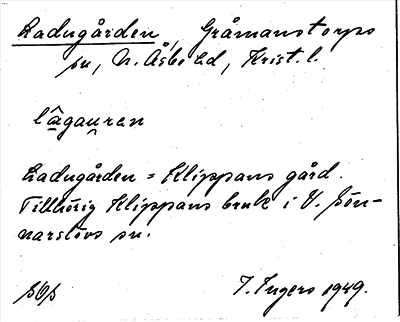 Ladugården, Gråmanstorps
sn, N. Åsbo hd, Krist. l.
lâgauren
Ladugården = Klippans gård.
Tillhörig Klippans bruk i V. Sön-
narslövs sn.
I. Ingers 1949.